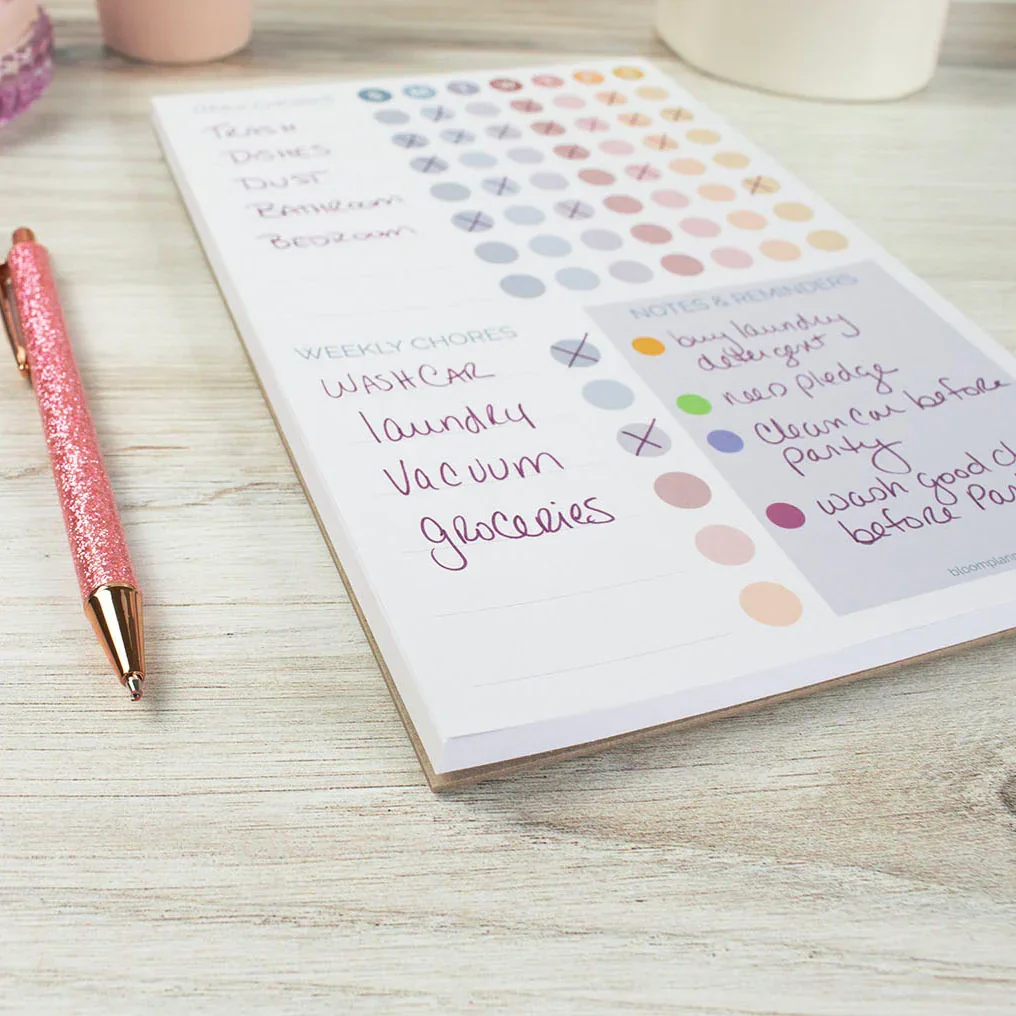 DAILY CHORES
S M T W T F S
TRASH
DISHES
DUST
BATHROOM
BEDROOM
WEEKLY CHORES
WASH CAR
laundry
Vacuum
groceries
NOTES & REMINDERS
buy laundry
detergent
need pledge
Clean car before
party
wash good
before
bloomplann